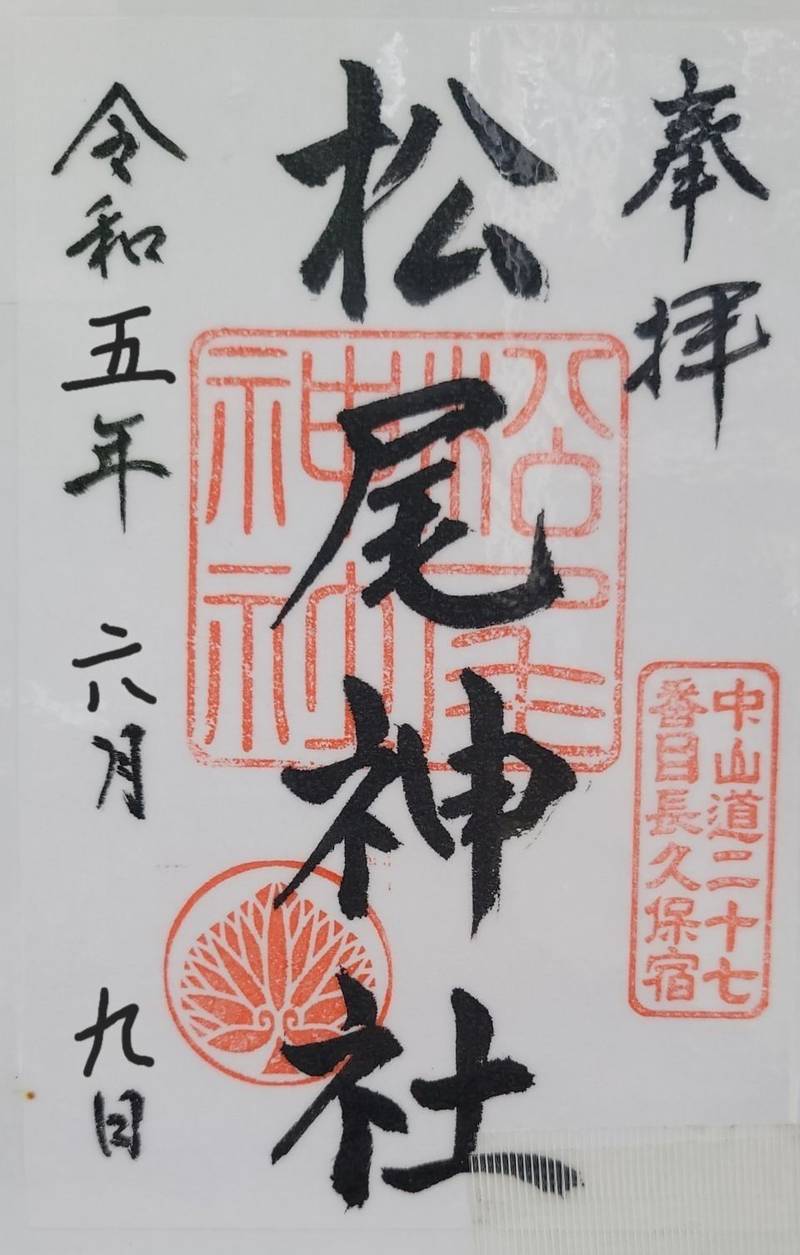 奉拝
中山道二十七
番目長久保宿
松尾神社
松尾
神社
令和五年 六月 九日